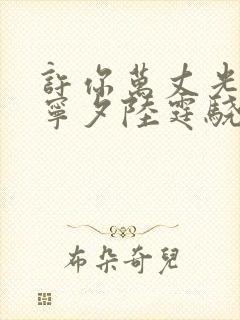 許你萬丈光
寧夕陸霆驍
布朵奇兒